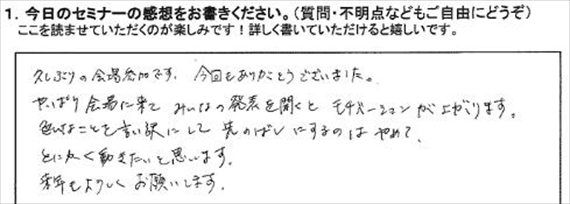 1. 今日のセミナーの感想をお書きください。（質問・不明点などもご自由にどうぞ）
ここを読ませていただくのが楽しみです！詳しく書いていただけると嬉しいです。
久しぶりの会場参加です。今回もありがとうございました。
やっぱり会場に来て みんなの発表を聞くと モチベーションが上がります。
色んなことを言い訳にして 先のばしにするのは やめて、
とにかく動きたいと思います。
来年もよろしく お願いします。